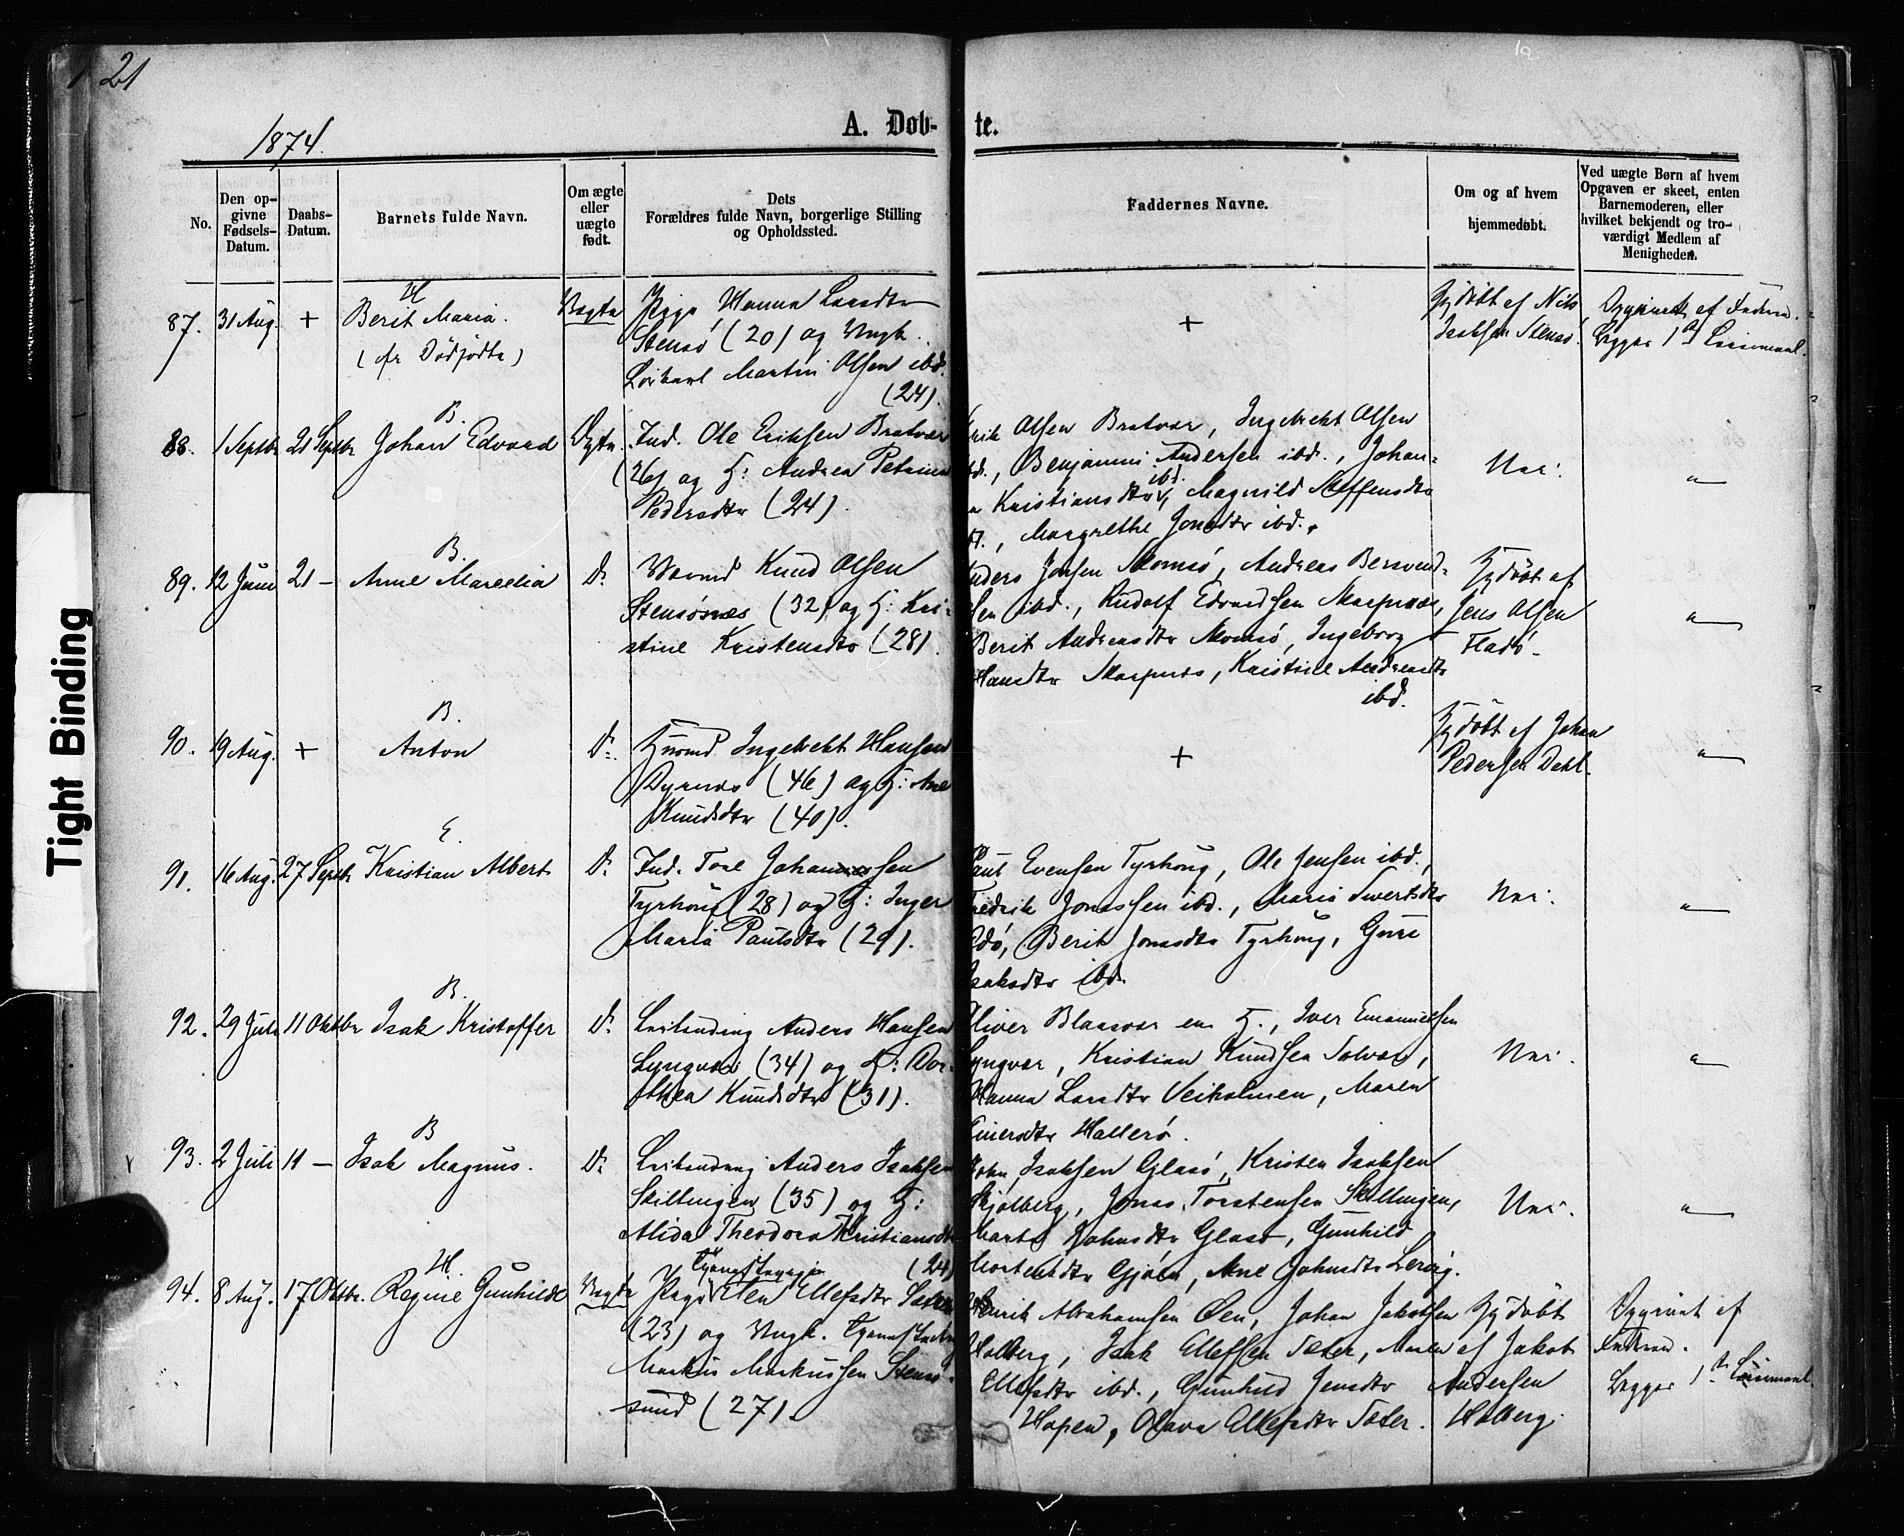 21
1874.
A. Døb- te.
No.
Den op-
givne
Fødsels-
Datum.
Daabs-
Datum.
Barnets fulde Navn.
Om ægte
eller
uægte
født.
Dets
Forældres fulde Navn, borgerlige Stilling
og Opholdssted.
Faddernes Navne.
Om og af hvem
hjemmedøbt.
Ved uægte Børn af hvem
Opgaven er skeet, enten
Barnemoderen, eller
hvilket bekjendt og tro-
værdigt Medlem af
Menigheden.
H
87. 31 Aug. + Berit Maria.
(er Dødfødte)
Uægte
Pige Hanna Larsdtr
Stensø (20) og Ungk.
Martin Olsen ibd.
(24).
+
Hjdøbt af Nils
Isaksen Stensø.
Opgivet af
Begges 1ste Leiermaal.
B.
88. 1 Septbr 21 Septbr Johan Edvard Ægte
Ind. Ole Eriksen Bratvær
(26) og H: Andrea Petrine
Pedersdtr (24).
Erik Olsen Bratvær, Ingebrekt Olsen
ibd., Benjamin Andersen ibd., Johan-
Kristiansdtr ibd., Magnild Steffensdtr
, Margrethe Jonsdtr ibd.
Nei.
"
B.
89. 12 Juni 21 – Anne Marcelia Do
Knud Olsen
Stensønes (32) og H: Kri-
stine Kristensdtr (28).
Anders Jonsen Momsø, Andreas
sen ibd., Rudolf Edvardsen
Berit Andreasdtr Momsø, Ingeborg
Hansdtr, Kristine Andreasdtr
ibd.
Hjdøbt af
Jens Olsen
Fladø.
"
B.
90. 19 Aug. + Anton Do
Ingebrekt Hansen
Dyrnes (46) og H: Ane
Knudsdtr (40).
+
Hjdøbt af Johan
Pedersen Dahl.
"
E.
91. 16 Aug. 27 Septbr Kristian Albert Do
Ind. Tore Johannessen
Tyrhoug (28) og H: Inger
Maria Paulsdtr (29).
Paul Evensen Tyrhoug, Ole Jensen ibd.,
Fredrik Jonassen ibd., Maria Sivertsdtr
Edø, Berit Jonasdtr Tyrhoug, Guri
Isaksdtr ibd.
Nei.
"
B.
92. 29 Juli 11 Oktbr Isak Kristoffer Do
Leilænding Anders Hansen
Lyngvær (34) og H: Dor-
thea Knudsdtr (31).
Oliver Blaasvær en H., Iver Emanuelsen
Lyngvær, Kristian Knudsen Tolvær,
Hanna Larsdtr Veiholmen, Maren
Einersdtr Hallerø.
Nei.
"
B
93. 2 Juli 11 – Isak Magnus. Do
Leilænding Anders Isaksen
Skillingen (35) og H:
Alida Theodora Kristiansdtr
(24)
John Isaksen Glasø, Kristen Isaksen
Skjølberg, Jonas Torstensen Skillingen,
Marta Johnsdtr Glasø, Gunhild
Mortensdtr Gjøen, Ane Johnsdtr Lervig.
Nei.
"
H.
94. 8 Aug. 17 Oktbr. Regine Gunhilde Uægte
Pige Elen Ellefsdtr
(23) og Ungk.
Markus Markussen Stensø-
sund (27).
Henrik Abrahamsen Øen, Johan Jakobsen
Holberg, Isak Ellefsen Tæter, Maren
Ellefsdtr ibd., Gunhild Jensdtr
Hopen, Olava Ellefsdtr Tæter.
Hjdøbt
af Jakob
Andersen
Holberg.
Opgivet af
Begges 1ste Leiermaal.
Tight Binding